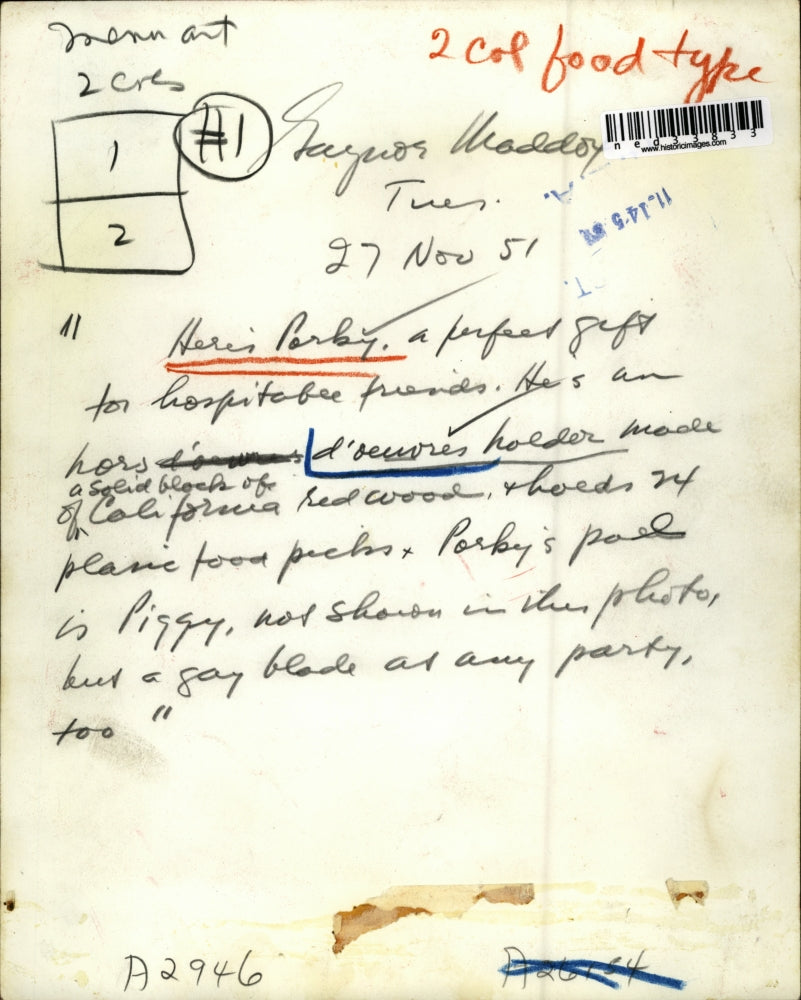 menu art
2 cols
1
2
#1
2 col food type
ned33833
www.historicimages.com
Gaynor Maddox
Tues.
27 Nov 51
"Here's Porky, a perfect gift
for hospitable friends. He's an
hors d'oeuvres d'oeuvres holder made
a solid block of
of California redwood, & holds 24
plasic food picks. Porky's pal
is Piggy, not shown in this photo,
but a gay blade at any party,
too"
A2946